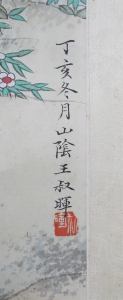 丁亥冬月山陰王叔暉